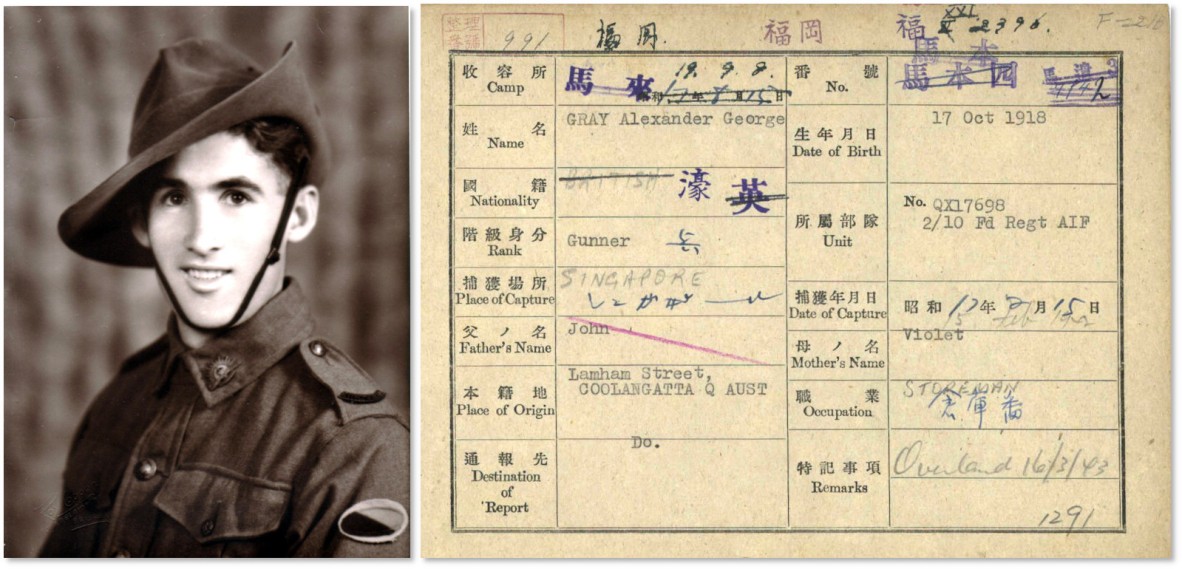 整理番號
991
福岡
福岡
福
XXI
2396.
F-
馬本
馬本四
收容所
Camp
馬來
19. 9. 8.
昭和17年8月15日
番號
No.
姓名
Name
GRAY Alexander George
生年月日
Date of Birth
17 Oct 1918
國籍
Nationality
BRITISH
濠
英
階級身分
Rank
Gunner
兵
所屬部隊
Unit
No. QX17698
2/10 Fd Regt AIF
捕獲場所
Place of Capture
SINGAPORE
捕獲年月日
Date of Capture
昭和17年2月15日
父ノ名
Father's Name
John
母ノ名
Mother's Name
Violet
本籍地
Place of Origin
Lamham Street,
COOLANGATTA Q AUST
職業
Occupation
STOREMAN
倉庫番
通報先
Destination of Report
Do.
特記事項
Remarks
Overland 16/3/43
1291